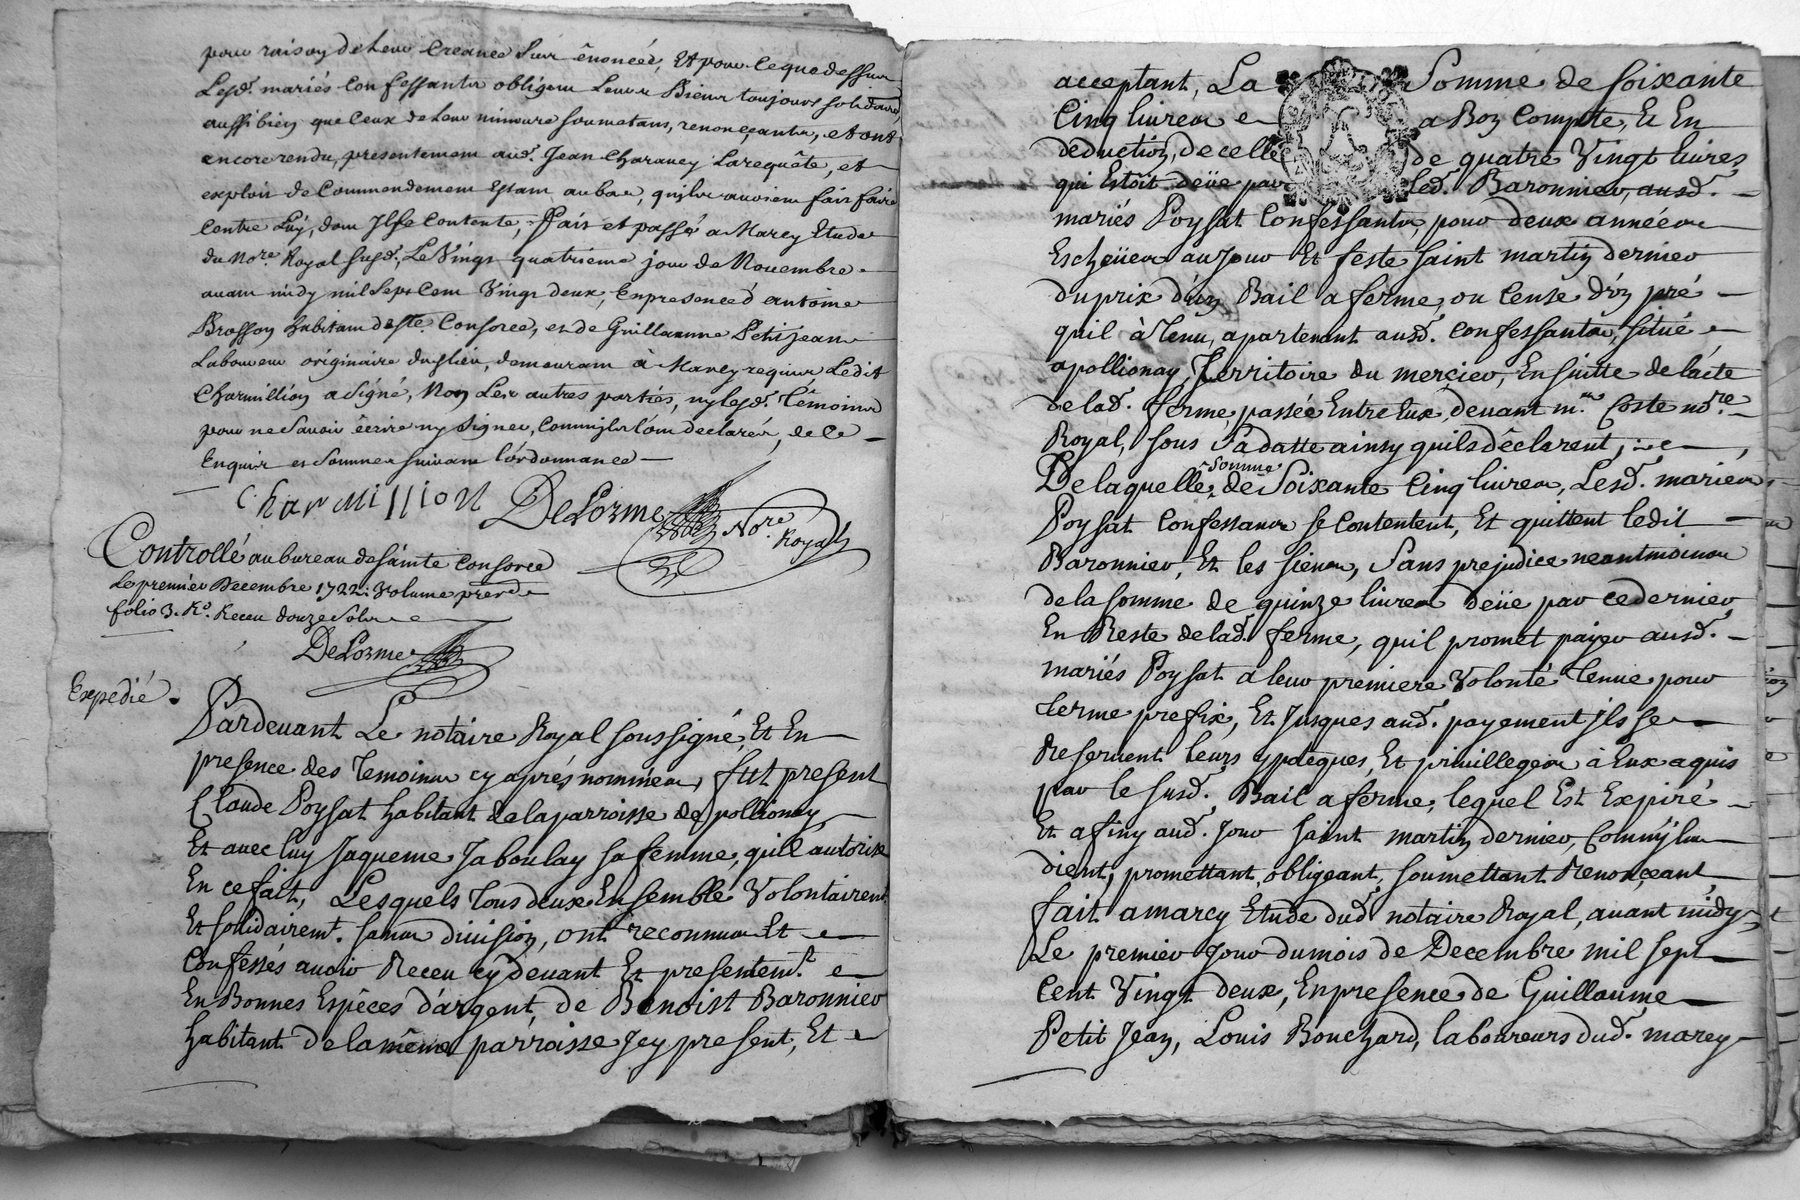 pour raison de leur Creance Sus énoncéé, Et pour ce que dessus
Lesd. mariés Confessants obligent Leurs Biens toujours solidaires,
aussi bien que Ceux de leur mineure soumettans, renonçants, et ont
encore rendu, presentement aud. Jean Charavey La requête, et
exploit de Commendement Estant au bas, quils avoient fait faire
Contre Luy, dont Il se Contente, Fait et passé a Marcy Etude
du No.re Royal susd., Le Vingt quatrieme jour de Novembre
avant midy mil Sept Cent Vingt deux, En presence d'antoine
Brosson habitant de Ste. Consorce, et de Guillaume Petitjean
Laboureur originaire dud lieu, demeurant à Marcy requis Ledit
Charmillion a Signé, Non Les autres parties, ny lesd. Témoins
pour ne Savoir écrire ny Signer, Comm'ils L'ont declarés, de Ce
Enquis et Sommes suivant l'ordonnance
Charmillion DeLorme No.re Royal
Controllé au bureau de sainte Consorce
Le premier Decembre 1722. Volume
folio 3. Ro. Receu douze Sols
DeLorme
Expedié.
Pardevant Le notaire Royal soussigné, Et En
presence des Temoins cy aprés nommés, fut present
Claude Poysat habitant de la parroisse de pollionay
Et avec luy Jaqueme Jaboulay sa femme, quil autorise
En ce fait, Lesquels Tous deux Ensemble Volontairemt.
Et solidairemt. sans division, ont reconnus Et
Confessés avoir Receu cy devant Et presentemt.
En Bonnes Espêces d'argent, de Benoist Baronnier
habitant de la même parroisse Icy present, Et
acceptant, La Somme de soixante
Cinq livres a Bon Compte, Et En
deduction, de celle de quatre Vingt livres
qui Estoit deüe par led. Baronnier, ausd.
mariés Poysat Confessants, pour deux années
Escheües au Jour Et feste saint martin dernier
du prix d'un Bail a ferme, ou Cense d'un pré
quil à Tenu, apartenant ausd. Confessants, situé
a pollionay, Territoire du mercier, En suitte de l'acte
de lad. ferme, passée Entre Eux, devant m.re Coste no.re
Royal, sous Sa datte ainsy quils dêclarent,
De laquelle somme de Soixante Cinq livres, Lesd. mariés
Poysat Confessants se Contentent, Et quittent ledit
Baronnier, Et les siens, Sans prejudice neantmoins
de la somme de quinze livres deüe par ce dernier
En Reste de lad. ferme, quil promet païer ausd.
mariés Poysat a leur premiere Volonté Tenue pour
terme prefix, Et Jusques aud. payement Ils se
Reservent leurs ypoteques, Et privilleges à Eux aquis
par le susd. Bail a ferme, lequel Est Expiré
Et a finy aud. Jour saint martin dernier, Comm'ils
dient, promettant, obligeant, soumettant Renonçeant,
fait a marcy Etude dud. notaire Royal, avant midy,
Le premier Jour du mois de Decembre mil sept
Cent Vingt deux, En presence de Guillaume
Petit Jean, Louis Bouchard, laboureurs dud. marcy